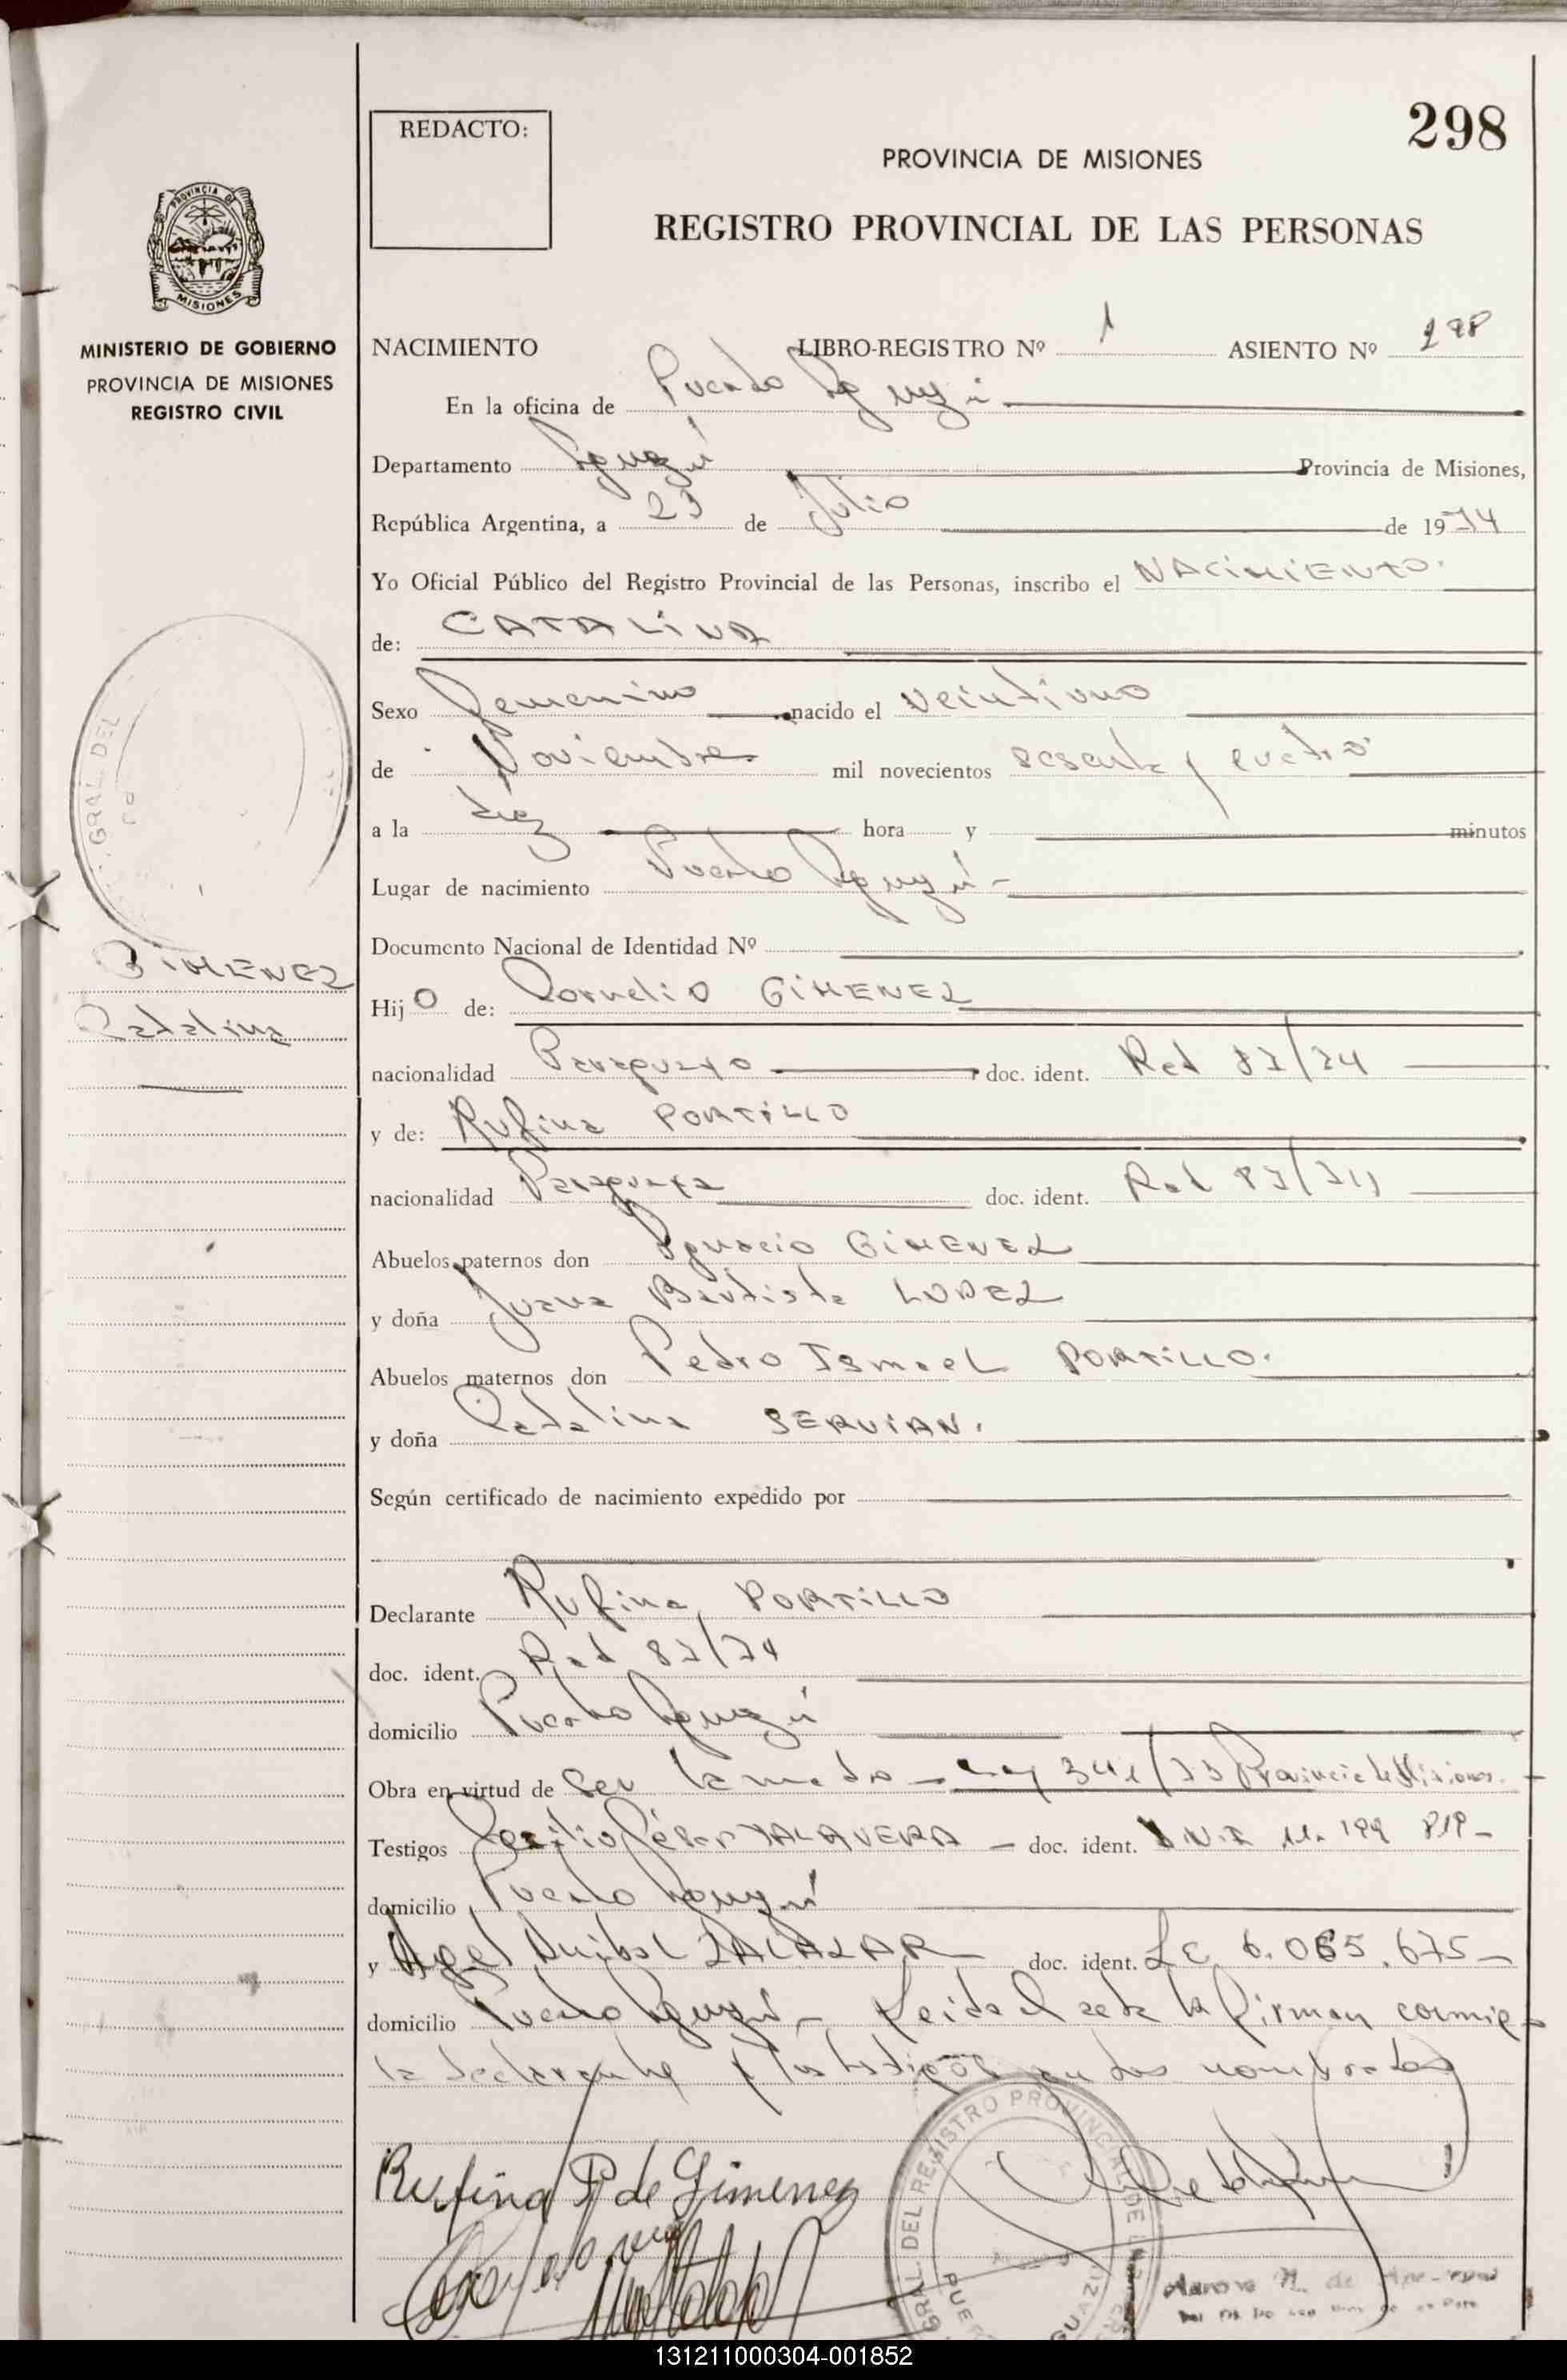 298
REDACTO:
PROVINCIA DE MISIONES
REGISTRO PROVINCIAL DE LAS PERSONAS
PROVINCIA DE
MISIONES
MINISTERIO DE GOBIERNO
PROVINCIA DE MISIONES
REGISTRO CIVIL
NACIMIENTO LIBRO-REGISTRO Nº 1 ASIENTO Nº 298
En la oficina de Puerto Iguazú
Departamento Iguazú Provincia de Misiones,
República Argentina, a 23 de Julio de 1974
Yo Oficial Público del Registro Provincial de las Personas, inscribo el NACIMIENTO.
de: CATALINA
Sexo Femenino nacido el veintiuno
de Noviembre mil novecientos sesenta y cuatro
a la diez hora y minutos
Lugar de nacimiento Puerto Iguazú-
Documento Nacional de Identidad Nº
GIMENEZ
Catalina
Hijo de: Cornelio GIMENEZ
nacionalidad Paraguayo doc. ident. Rad 87/74
y de: Rufina PORTILLO
nacionalidad Paraguaya doc. ident. Rad 87/74
Abuelos paternos don Ignacio GIMENEZ
y doña Juana Bautista LOPEZ
Abuelos maternos don Pedro Ismael PORTILLO.
y doña Catalina SERVIAN.
Según certificado de nacimiento expedido por
Declarante Rufina PORTILLO
doc. ident. Rad 87/74
domicilio Puerto Iguazú
Obra en virtud de Ser la madre - Ley 341/73 Provincia de Misiones.
Testigos César TALAVERA - doc. ident. D.N.I 11. 199 818-
domicilio Puerto Iguazú
y Angel Anibal ZALAZAR doc. ident. L E 6.065.675-
domicilio Puerto Iguazú- Leida el acta la firman conmigo
la declarante y los testigos nombrados
Rufina P de Gimenez
GRAL. DEL REGISTRO PROVINCIAL DE
PUER IGUAZU
GRAL DEL
131211000304-001852